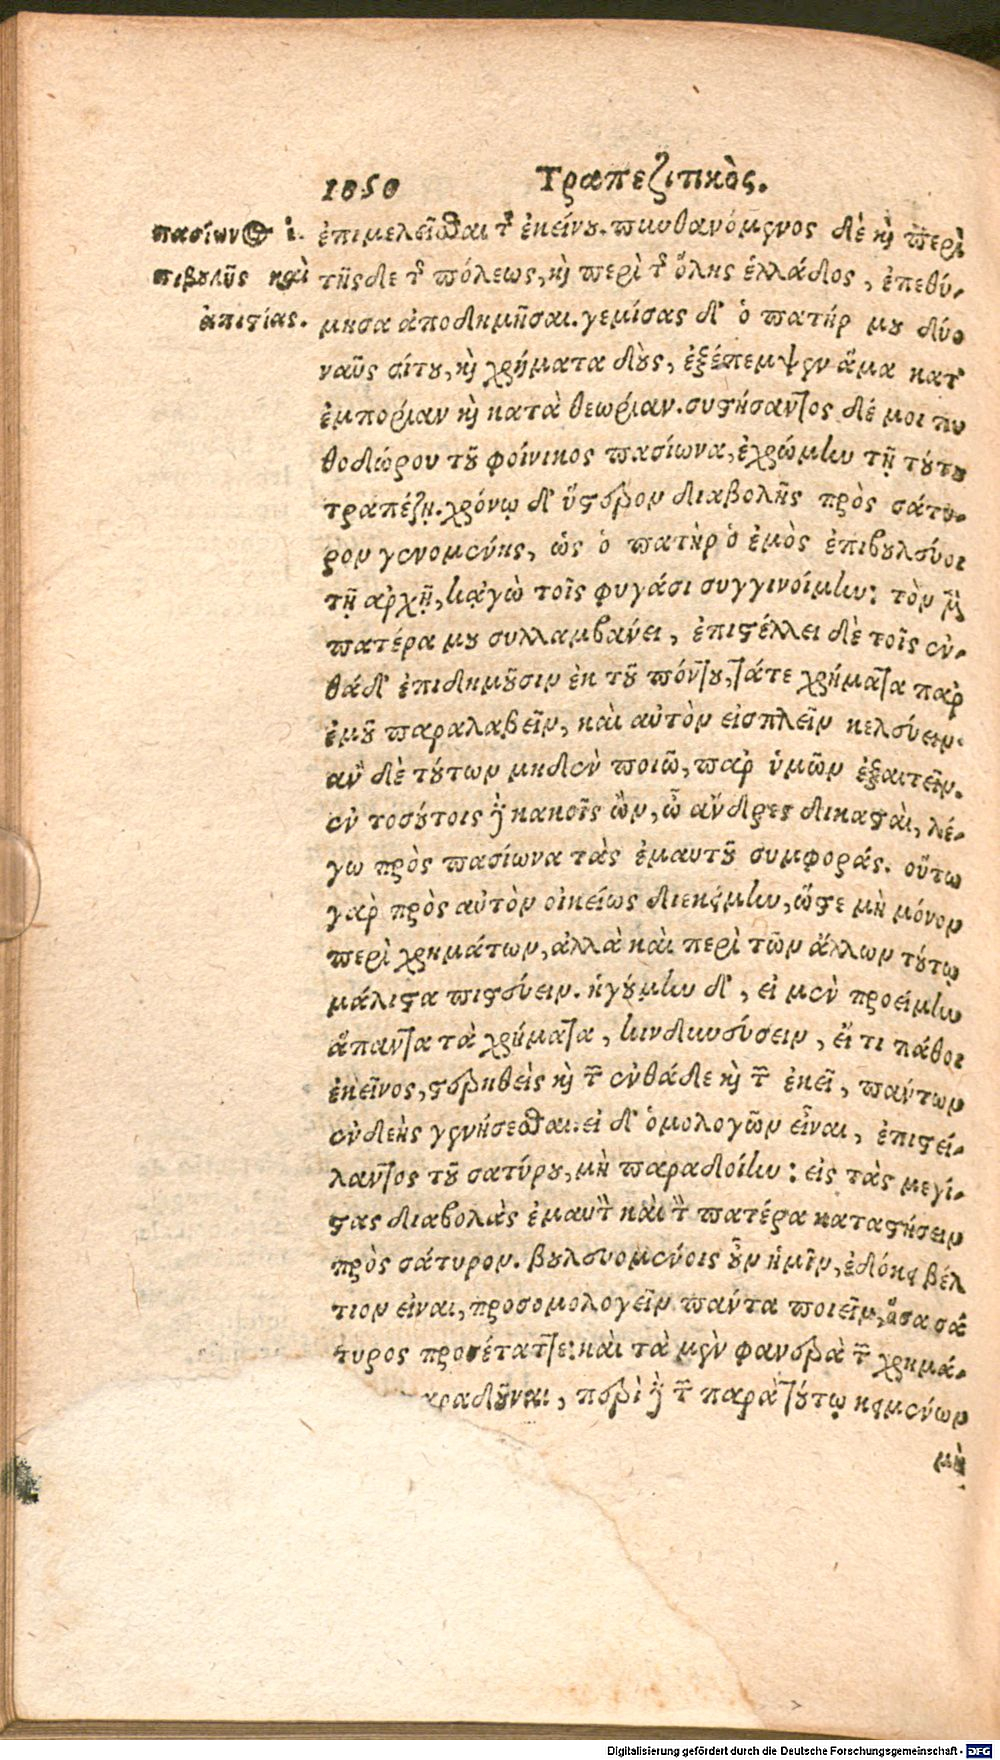 1050 Τραπεζιτικὸς.
πασίωνος ἐ-
πιβουλῆς καὶ
ἀπιστίας.
ἐπιμελεῖσθαι τῆς ἐκείνου. πυνθανόμενος δὲ καὶ περὶ
τῆσδε τῆς πόλεως, καὶ περὶ τῆς ὅλης ἑλλάδος, ἐπεθύ-
μησα ἀποδημῆσαι. γεμίσας δ' ὁ πατήρ μου δύο
ναῦς σίτου, καὶ χρήματα δοὺς, ἐξέπεμψεν ἅμα κατ'
ἐμπορίαν καὶ κατὰ θεωρίαν. συστήσαντος δέ μοι πυ
θοδώρου τοῦ φοίνικος πασίωνα, ἐχρώμην τῇ τούτου
τραπέζῃ. χρόνῳ δ' ὕστερον διαβολῆς πρὸς σάτυ-
ρον γενομένης, ὡς ὁ πατὴρ ὁ ἐμὸς ἐπιβουλεύοι
τῇ ἀρχῇ, κἀγὼ τοῖς φυγάσι συγγινοίμην: τὸν μὲν
πατέρα μου συλλαμβάνει, ἐπιστέλλει δὲ τοῖς ἐν-
θάδ' ἐπιδημοῦσιν ἐκ τοῦ πόντου, τάτε χρήματα παρ'
ἐμοῦ παραλαβεῖν, καὶ αὐτὸν εἰσπλεῖν κελεύειν·
ἂν δὲ τούτων μηδὲν ποιῶ, παρ' ὑμῶν ἐξαιτεῖν.
ἐν τοσούτοις δὲ κακοῖς ὢν, ὦ ἄνδρες δικασταὶ, λέ-
γω πρὸς πασίωνα τὰς ἐμαυτοῦ συμφοράς. οὕτω
γὰρ πρὸς αὐτὸν οἰκείως διεκείμην, ὥστε μὴ μόνον
περὶ χρημάτων, ἀλλὰ καὶ περὶ τῶν ἄλλων τούτῳ
μάλιστα πιστεύειν. ἡγούμην δ', εἰ μὲν προείμην
ἅπαντα τὰ χρήματα, κινδυνεύσειν, εἴ τι πάθοι
ἐκεῖνος, στερηθεὶς καὶ τῶν ἐνθάδε καὶ τῶν ἐκεῖ, πάντων
ἐνδεὴς γενήσεσθαι. εἰ δ' ὁμολογῶν εἶναι, ἐπιστεί-
λαντος τοῦ σατύρου, μὴ παραδοίην: εἰς τὰς μεγί-
στας διαβολὰς ἐμαυτὸν καὶ τὸν πατέρα καταστήσειν
πρὸς σάτυρον. βουλευομένοις οὖν ἡμῖν, ἐδόκει βέλ
τιον εἶναι, προσομολογεῖν πάντα ποιεῖν, ὅσα σά
τυρος προσέταττε: καὶ τὰ μὲν φανερὰ τῶν χρημά-
αραδοῦναι, περὶ δὲ τῶν παρὰ τούτῳ κειμένων
μὴ
Digitalisierung gefördert durch die Deutsche Forschungsgemeinschaft - DFG